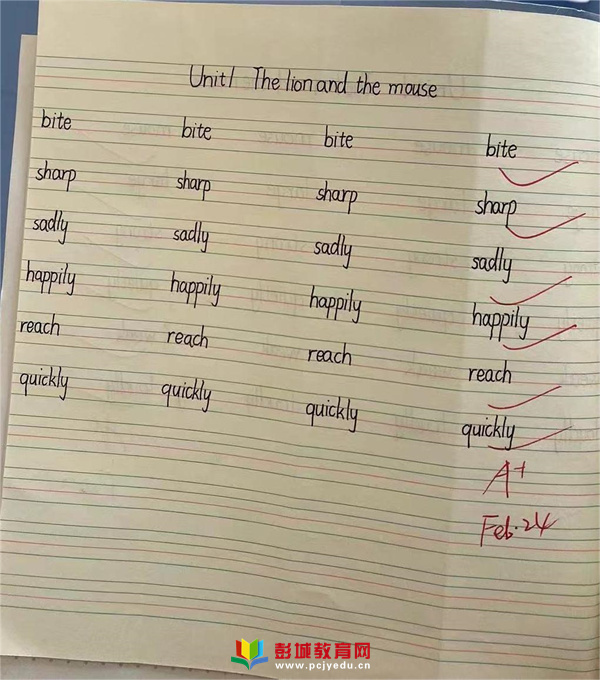 Unit1 The lion and the mouse
bite bite bite bite
sharp sharp sharp sharp
sadly sadly sadly sadly
happily happily happily happily
reach reach reach reach
quickly quickly quickly quickly
A+
Feb.24
彭城教育网
www.pcjyedu.cn